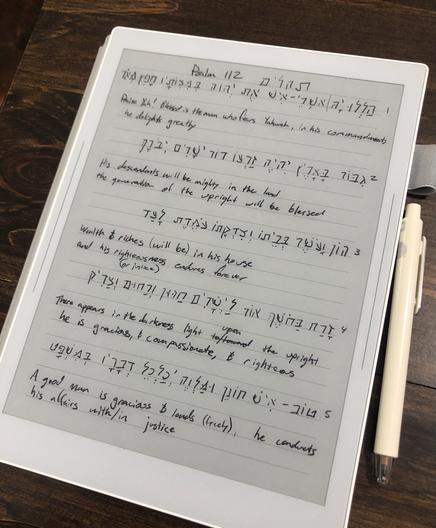 Psalm 112 תהלים
הַלְלוּ יָהּ אַשְׁרֵי-אִישׁ אֶת יְהוָה בְּמִצְוֺתָיו חָפֵץ מְאֹד 1
Praise Yah! Blessed is the man who fears Yahweh, in his commandments
he delights greatly
גִּבּוֹר בָּאָרֶץ יִהְיֶה זַרְעוֹ דּוֹר יְשָׁרִים יְבֹרָךְ 2
His descendants will be mighty in the land
the generation of the upright will be blessed
הוֹן וָעֹשֶׁר בְּבֵיתוֹ וְצִדְקָתוֹ עֹמֶדֶת לָעַד 3
Wealth & riches (will be) in his house
and his righteousness endures forever
(or justice)
זָרַח בַּחֹשֶׁךְ אוֹר לַיְשָׁרִים חַנּוּן וְרַחוּם וְצַדִּיק 4
There appears in the darkness light upon
to/toward the upright
he is gracious, & compassionate, & righteous
טוֹב-אִישׁ חוֹנֵן וּמַלְוֶה יְכַלְכֵּל דְּבָרָיו בְּמִשְׁפָּט 5
A good man is gracious & lends (freely), he conducts
his affairs with/in justice